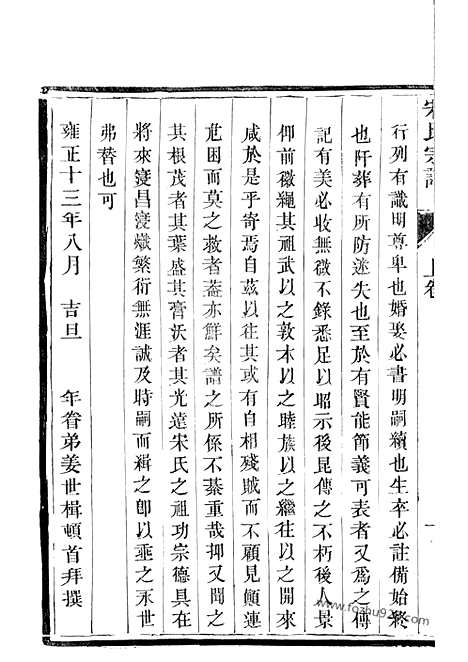 宋氏宗譜
上卷
行列有識明尊卑也婚娶必書明嗣續也生卒必註備始終
也阡葬有所防迷失也至於有賢能節義可表者又爲之傳
記有美必收無微不錄悉足以昭示後昆傳之不朽後人景
仰前徽繩其祖武以之敦本以之睦族以之繼往以之開來
咸於是乎寄焉自茲以往其或有自相殘賊而不顧見顛連
危困而莫之救者蓋亦鮮矣譜之所係不綦重哉抑又聞之
其根茂者其葉盛其膏沃者其光遠宋氏之祖功宗德具在
將來寖昌寖熾繁衍無涯誠及時嗣而緝之卽以垂之永世
弗替也可
雍正十三年八月　吉旦　年眷弟姜世楫頓首拜撰
www.fozhu920.com